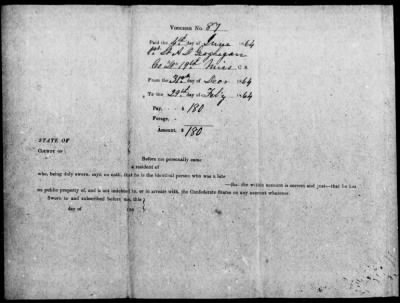 VOUCHER NO. 87
Paid the 4th day of June 1864
1st Lt A. D. Geoghegan
Co "D" 19th Miss C. S.
From the 31st day of Decr 1864
To the 29th day of Feby 1864
Pay, - - $ 180
Forage, -
Amount, $ 180
STATE OF
COUNTY OF
Before me personally came
a resident of
who, being duly sworn, says, on oath, that he is the identical person who was a late
—that the within account is correct and just—that he has
no public property of, and is not indebted to, or in arrears with, the Confederate States on any account whatever.
Sworn to and subscribed before me, this
day of 186